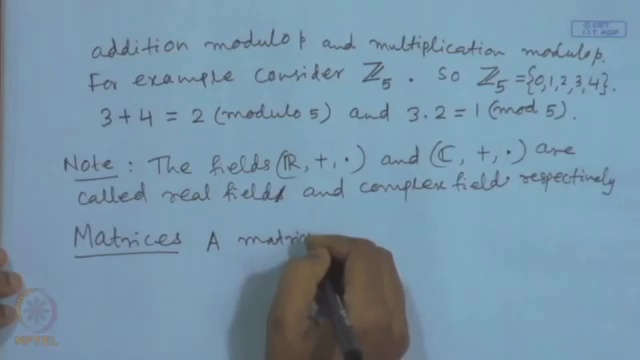 addition modulo p and multiplication modulo p.
For example consider ℤ₅ . so ℤ₅ = {0,1,2,3,4}.
3+4 = 2 (modulo 5) and 3.2 = 1 (mod 5).
Note : The fields (ℝ, +, ·) and (ℂ, +, ·) are
called real field and complex field respectively
Matrices A matri
NPTEL